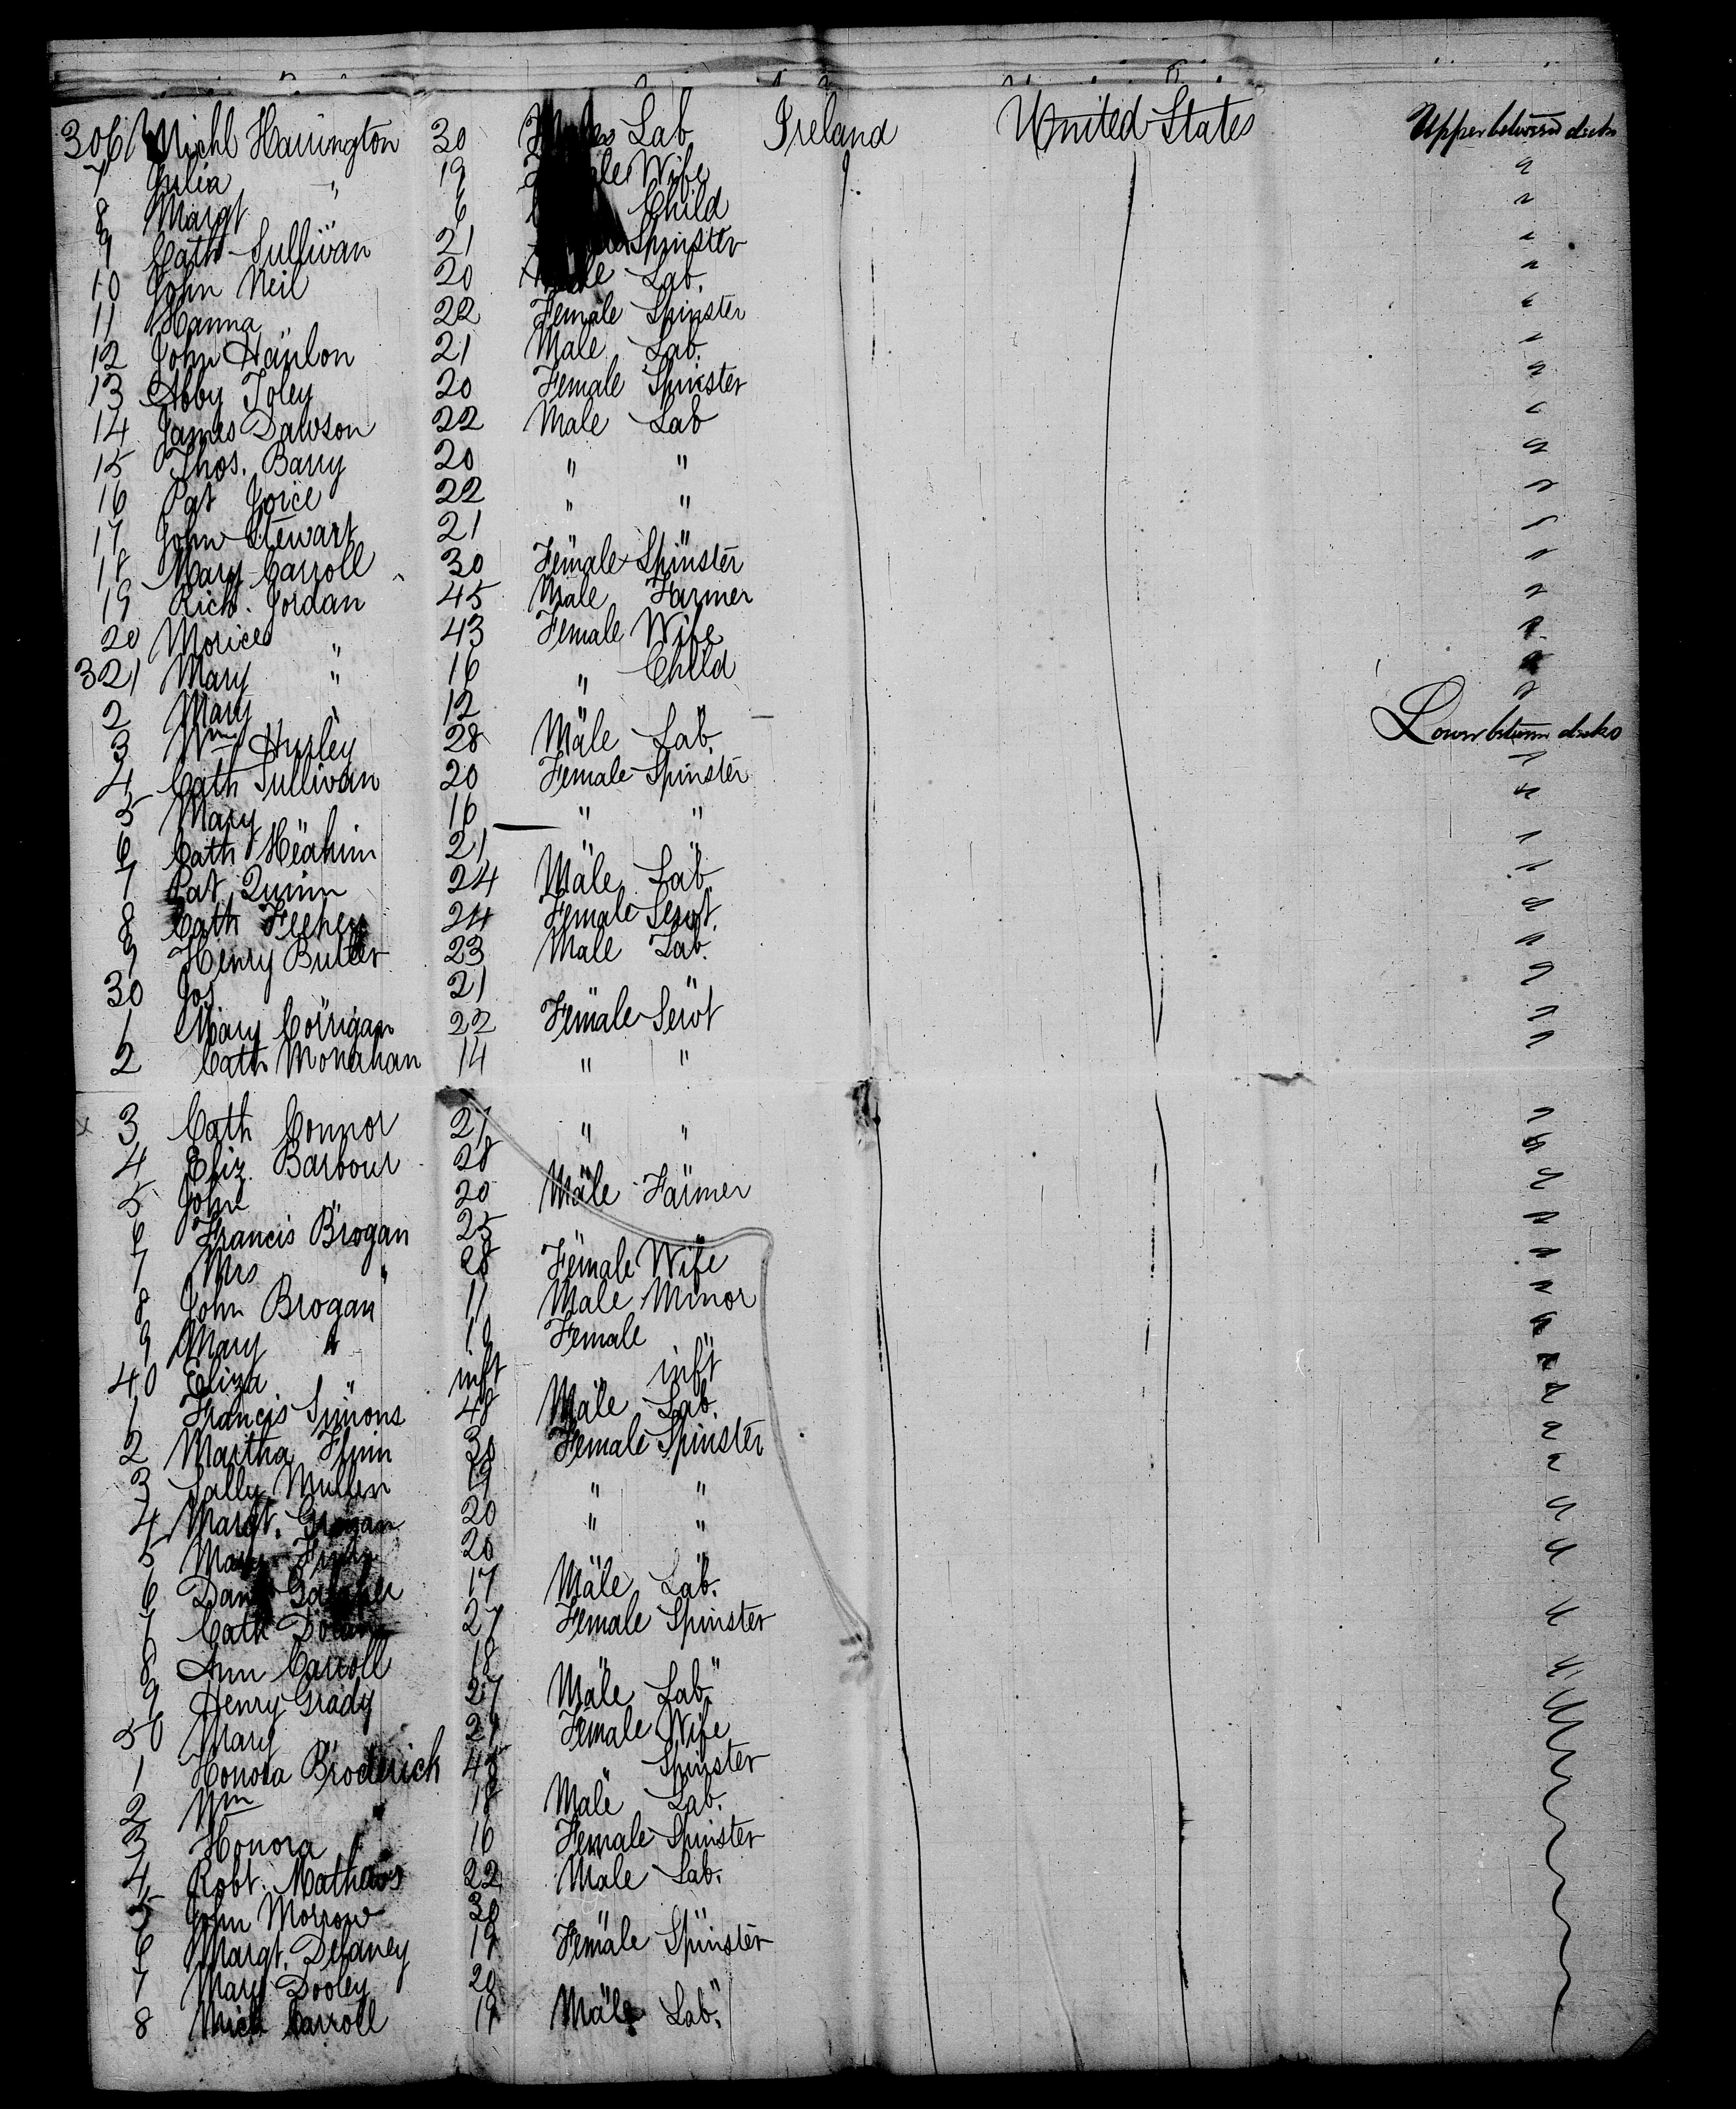 306 Michl Harrington 30 Lab Ireland United States Upper between decks
7 Julia " 19 Wife "
8 Margt " 6 Child "
9 Cath Sullivan 21 Spinster "
10 John Neil 20 Lab. "
11 Hanna " 22 Female Spinster "
12 John Hanlon 21 Male Lab. "
13 Abby Foley 20 Female Spinster "
14 James Dawson 22 Male Lab "
15 Thos. Barry 20 " " "
16 Pat Joice 22 " " "
17 John Stewart 21 " " "
18 Mary Carroll 30 Female Spinster "
19 Rich. Jordan 45 Male Farmer "
20 Morice " 43 Female Wife "
321 Mary " 16 " Child "
2 Mary " 12 " " "
3 Wm Hurley 28 Male Lab. Lower between decks
4 Cath Sullivan 20 Female Spinster "
5 Mary " 16 " " "
6 Cath 21 " " "
7 Pat Quinn 24 Male Lab "
8 Cath Feehey 24 Female Servt. "
9 Henry Butler 23 Male Lab. "
30 Jos " 21 " " "
1 Mary Corrigan 22 Female Servt "
2 Cath Monahan 14 " " "
3 Cath Connor 21 " " "
4 Eliz. Barbour 28 " " "
5 John " 20 Male Farmer "
6 Francis Brogan 25 " " "
7 Mrs " 28 Female Wife "
8 John Brogan 11 Male Minor "
9 Mary " Female "
40 Eliza " inft " inft "
1 Francis Simons 48 Male Lab. "
2 Martha Flinn 30 Female Spinster "
3 Sally Mullen 19 " " "
4 Margt. Grogan 20 " " "
5 20 " " "
6 Danl 17 Male Lab. "
7 Cath Dolan 27 Female Spinster "
8 Ann Carroll 18 " " "
9 Henry Grady 27 Male Lab "
50 Mary " Female Wife "
1 Honora Broderick 48 " Spinster "
2 Wm " 18 Male Lab. "
3 Honora " 16 Female Spinster
4 Robt. Mathews 22 Male Lab.
5 John Morrow 30 " "
6 Margt. Delaney 19 Female Spinster
7 Mary Dooley 20 " "
8 Mich Carroll 19 Male Lab.